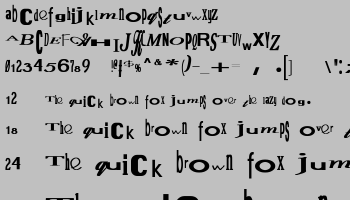 abCdefghijklmnopqrstuvwxyz
ABCDEFGHIJKLMNOPQRSTUVWXYZ
0123456789 _ - + = , . [ ]
12 The quick brown fox jumps over the lazy dog.
18 The quick brown fox jumps over
24 The quick brown fox jum